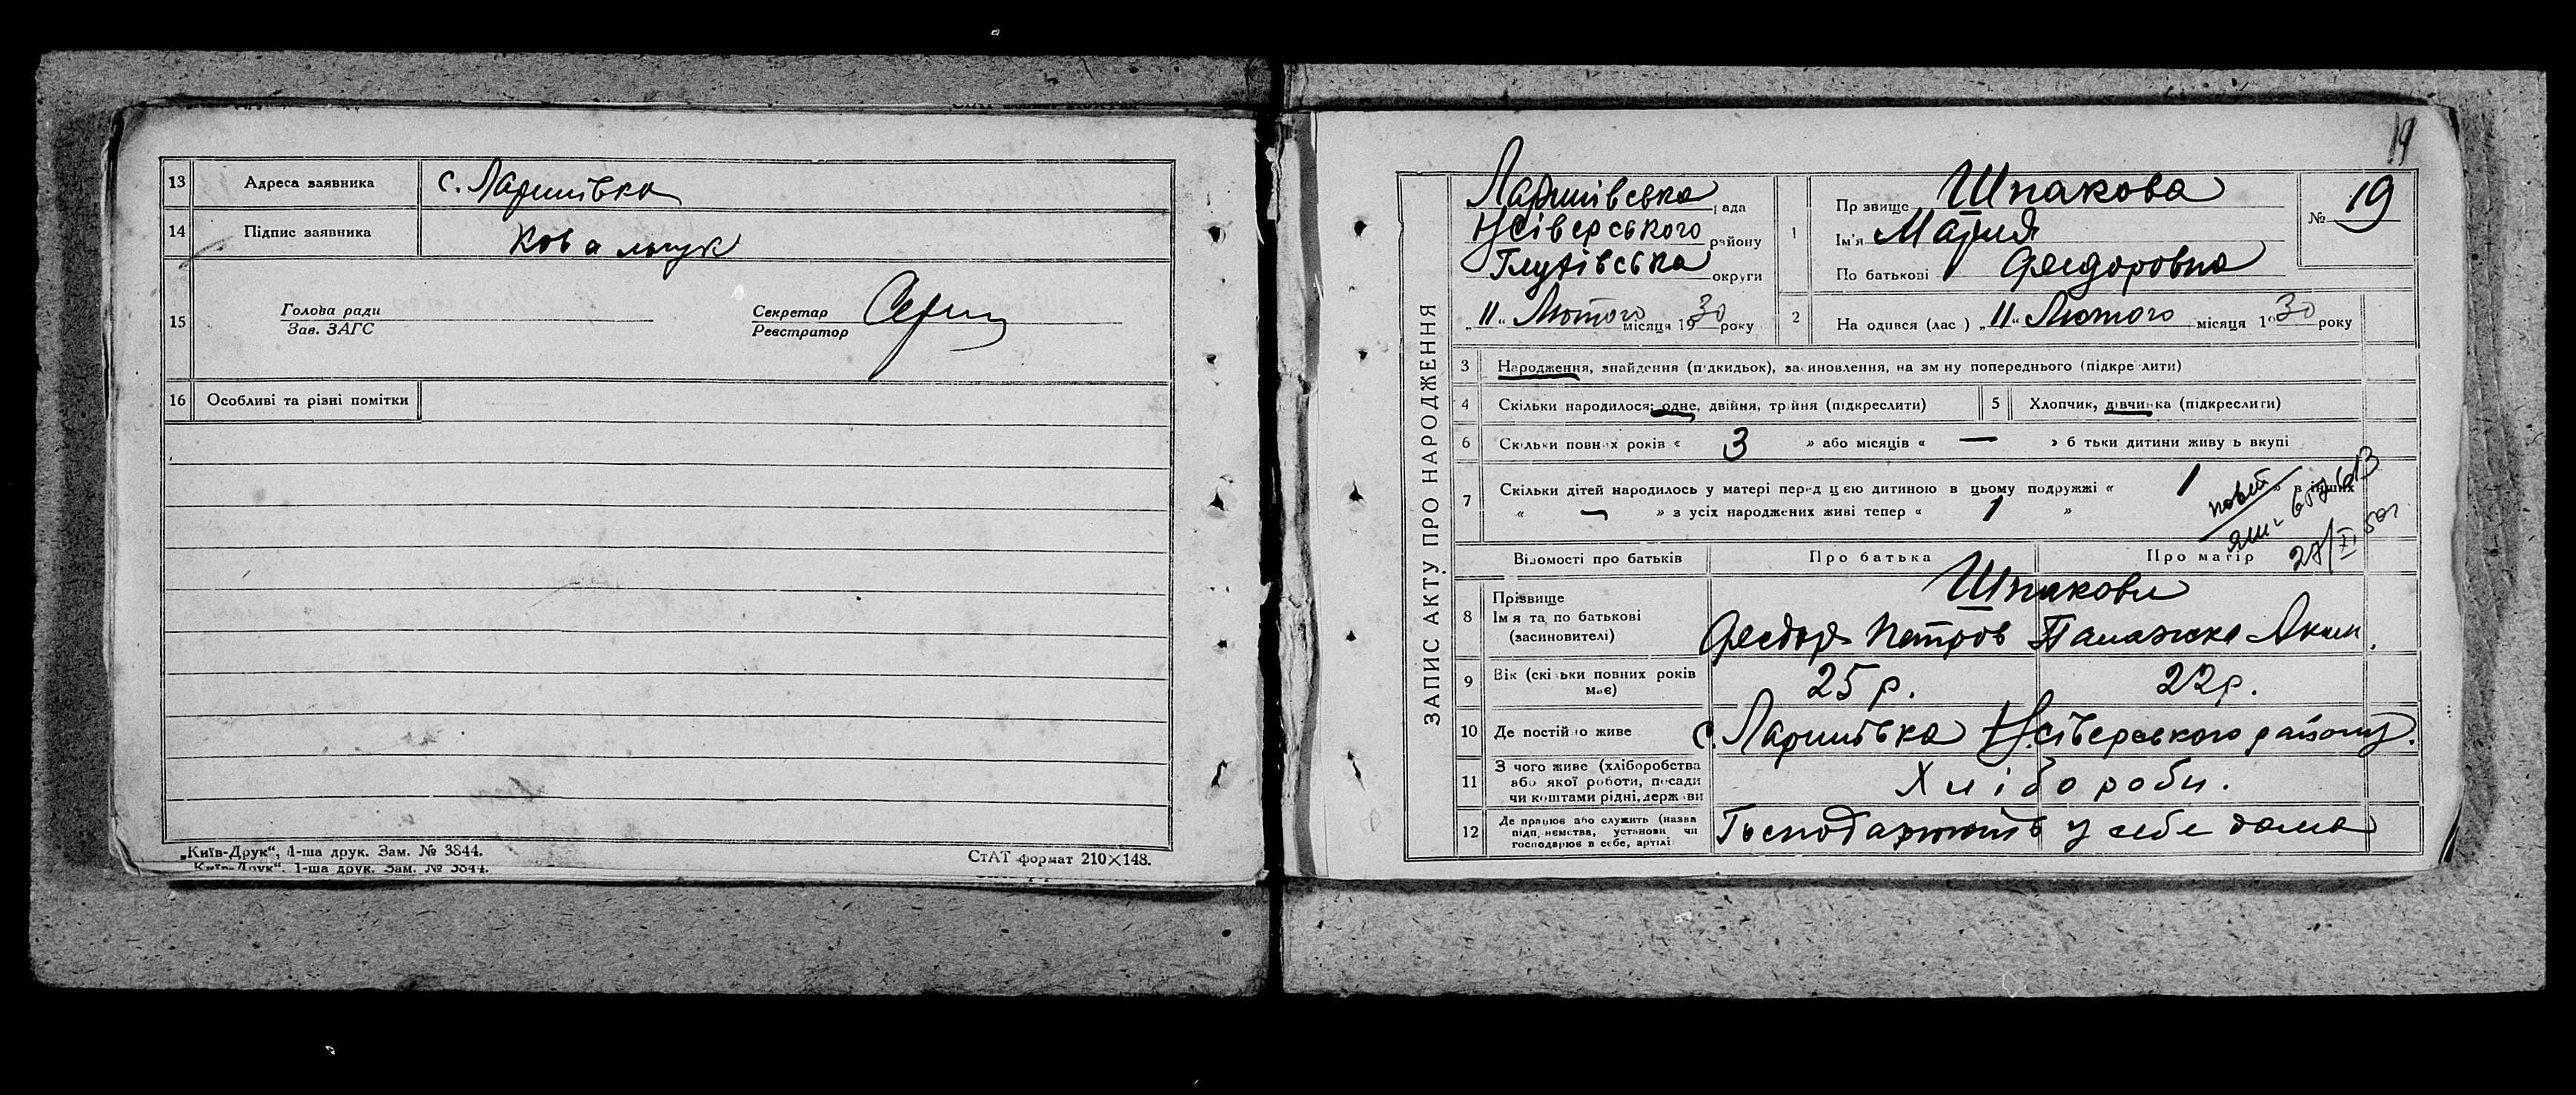 13 Адреса заявника с. Ларинівка
14 Підпис заявника Ковальчук
15 Голова ради
Зав. ЗАГС
Секретар
Реєстратор
16 Особливі та різні помітки
„Київ-Друк“, 1-ша друк. Зам. № 3844.
СтАТ формат 210×148.
„Київ-Друк“. 1-ша друк. Зам. № 3844.
19
ЗАПИС АКТУ ПРО НАРОДЖЕННЯ
Ларинівська рада
Н Сіверського району
Глухівська округи
„11“ Лютого місяця 1930 року
1 Прізвище Шпакова
Ім'я Мария
По батькові Федоровна
№ 19
2 Народився (лась) „11“ Лютого місяця 1930 року
3 Народження, знайдення (підкидьок), засиновлення, на зміну попереднього (підкреслити)
4 Скільки народилося: одне, двійня, трійня (підкреслити)
5 Хлопчик, дівчинка (підкреслити)
6 Скільки повних років « 3 » або місяців « — » батьки дитини живуть вкупі
7 Скільки дітей народилось у матері перед цією дитиною в цьому подружжі « 1 » в інших
« — » з усіх народжених живі тепер « 1 »
Відомості про батьків Про батька Про матір
8 Прізвище
Ім'я та по батькові
(засиновителі)
Шпакови
Федор Петров Палажка Яким.
9 Вік (скільки повних років має) 25 р. 22 р.
10 Де постійно живе с. Ларинівка Н.Сіверського району.
11 З чого живе (хліборобства
або якої роботи, посади
чи коштами рідні, держави
Хлібороби.
12 Де працює або служить (назва
підприємства, установи чи
господарює в себе, артілі
Господарюють у себе дома